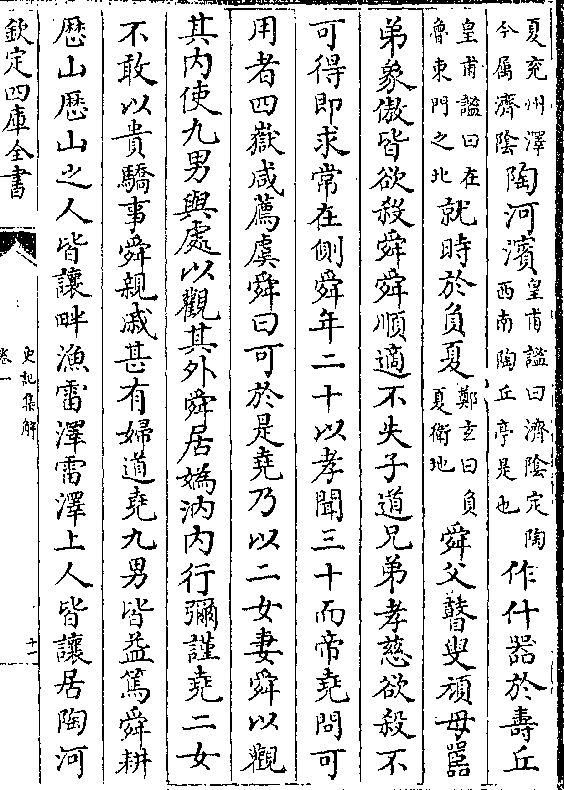 夏兖州澤
今属濟陰
陶河濱
皇甫謐曰濟陰定陶
西南陶丘亭是也
作什器於壽丘
皇甫謐曰在
魯東門之北
就時於負夏
鄭玄曰負
夏衛地
舜父瞽叟頑母嚚
弟象傲皆欲殺舜舜順適不失子道兄弟孝慈欲殺不
可得即求常在側舜年二十以孝聞三十而帝堯問可
用者四嶽咸薦虞舜曰可於是堯乃以二女妻舜以觀
其内使九男與處以觀其外舜居媯汭内行彌謹堯二女
不敢以貴驕事舜親戚甚有婦道堯九男皆益篤舜耕
歴山歴山之人皆讓畔漁雷澤雷澤上人皆讓居陶河
欽定四庫全書
史記集解
卷一
十一